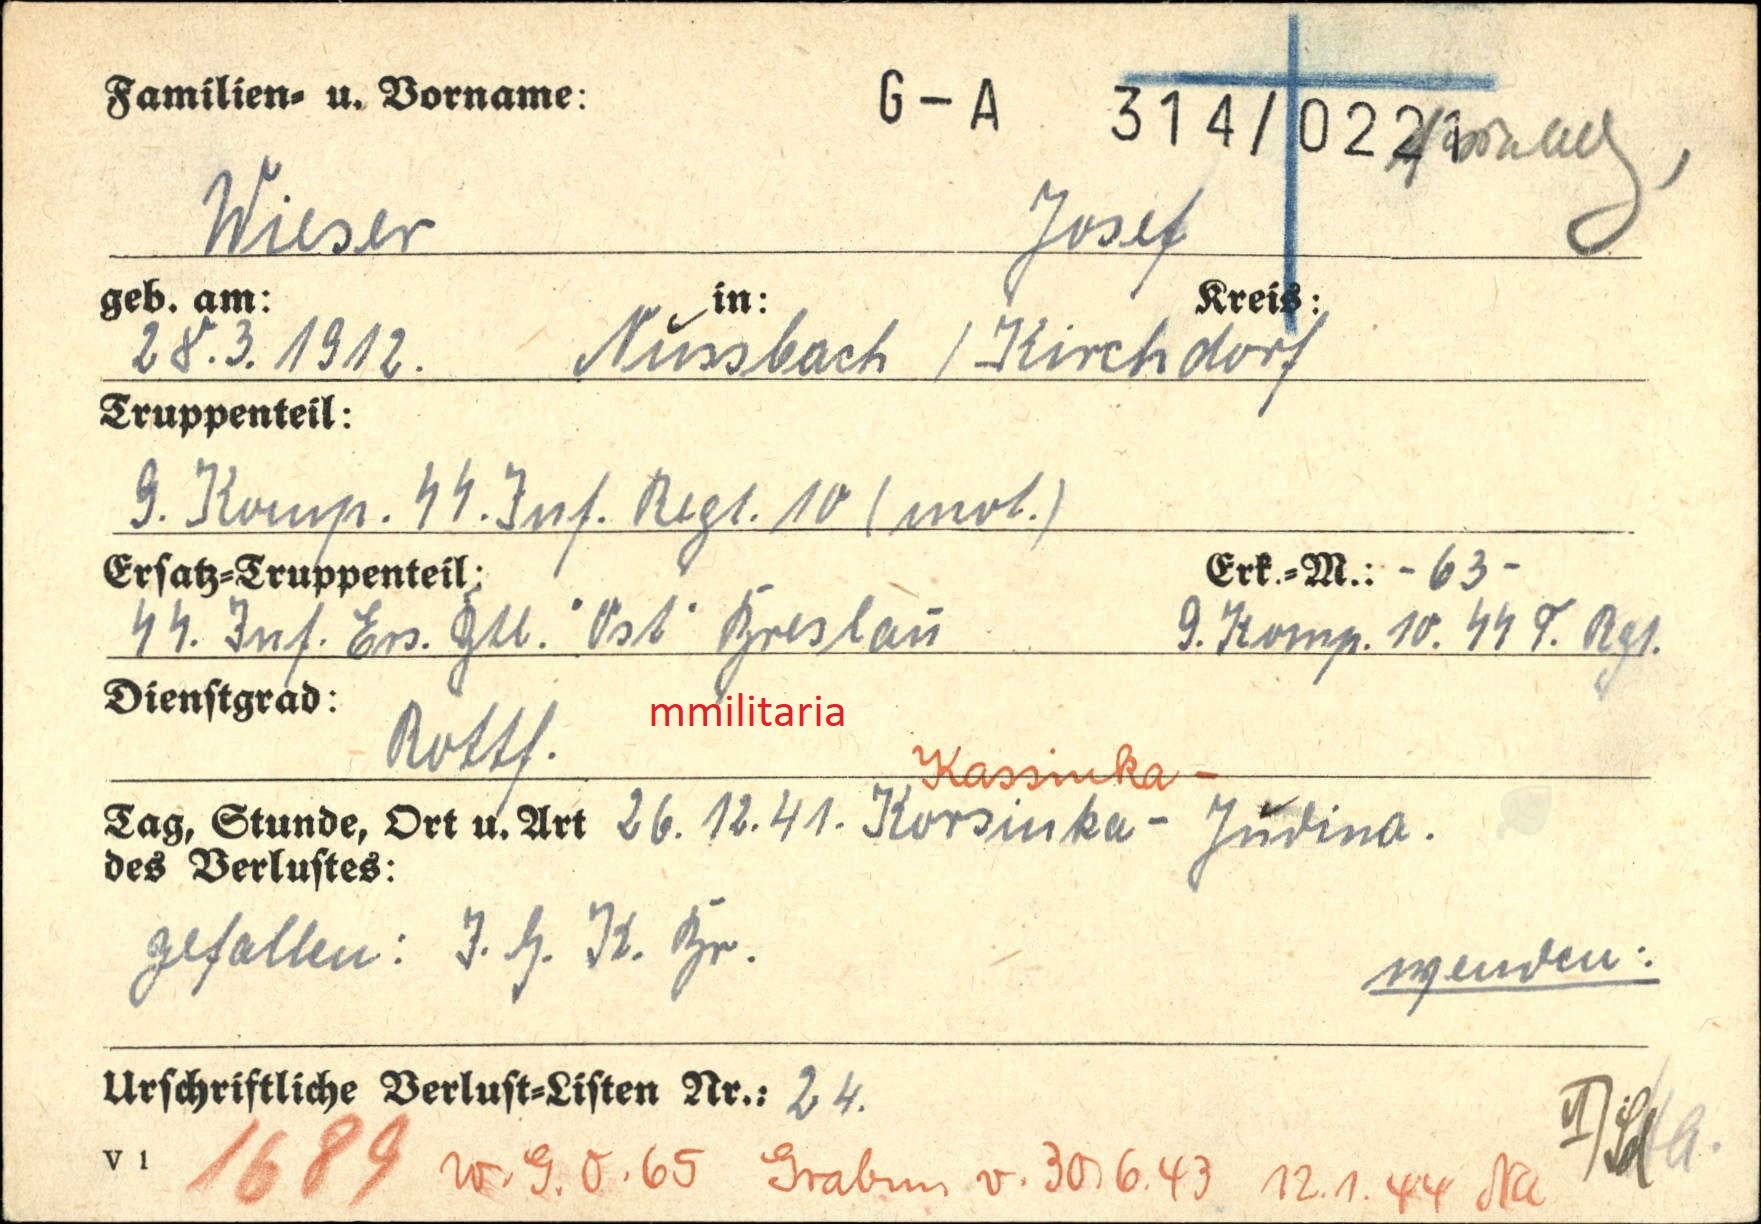 Familien- u. Vorname: G-A 314/0221
Wieser Josef
geb. am: in: Kreis:
28.3.1912. Nussbach / Kirchdorf
Truppenteil:
9. Komp. ϟϟ. Inf. Regt. 10 (mot.)
Ersatz-Truppenteil: Erk.-M.: -63-
ϟϟ. Inf. Ers. Btl. "Ost" Breslau 9. Komp. 10. ϟϟ T. Rgt.
Dienstgrad:
Rottf.
mmilitaria
Kassinka-
Tag, Stunde, Ort u. Art 26.12.41. Korsinka- Judina.
des Verlustes:
gefallen: I. G. K. Br.
wenden:
Urschriftliche Verlust-Listen Nr.: 24.
V 1 1689 W.G.O.65 Grabm v. 30.6.43 12.1.44 Na